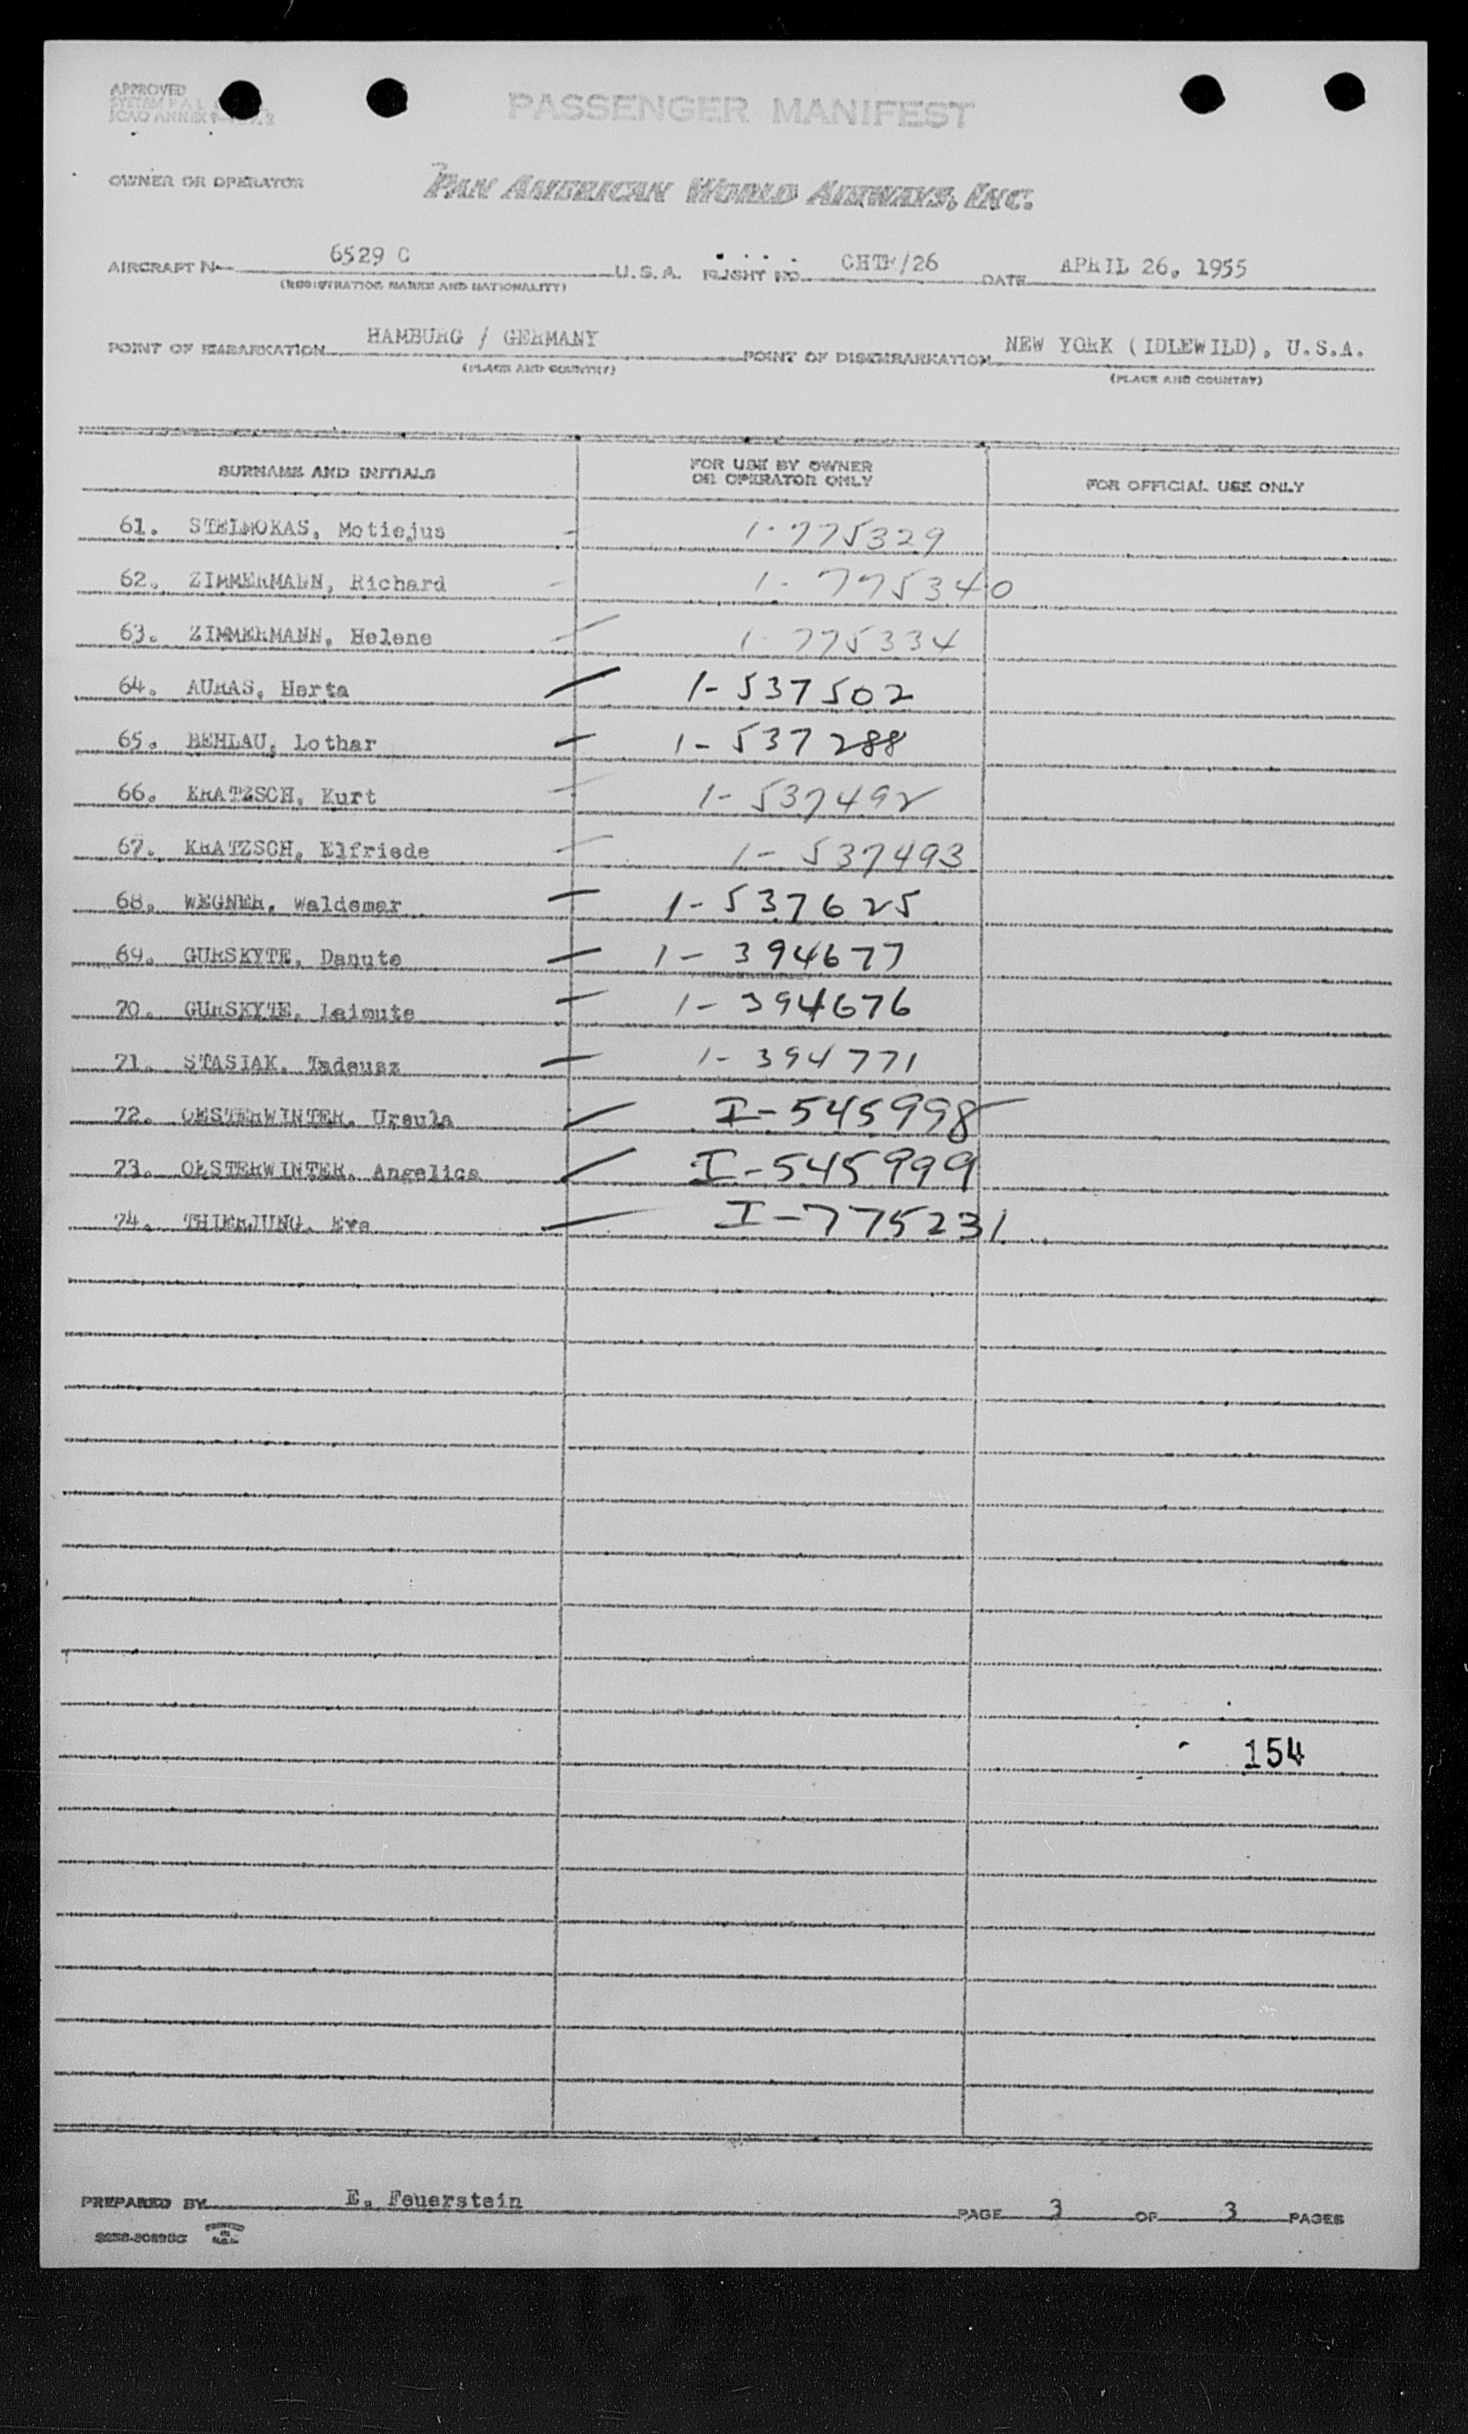 APPROVED
ICAO ANNEX 9
PASSENGER MANIFEST
OWNER OR OPERATOR PAN AMERICAN WORLD AIRWAYS, INC.
AIRCRAFT N 6529 C U.S.A. FLIGHT NO. CHTF/26 DATE APRIL 26, 1955
(REGISTRATION MARKS AND NATIONALITY)
POINT OF EMBARKATION HAMBURG / GERMANY POINT OF DISEMBARKATION NEW YORK (IDLEWILD), U.S.A.
(PLACE AND COUNTRY) (PLACE AND COUNTRY)
SURNAME AND INITIALS FOR USE BY OWNER OR OPERATOR ONLY FOR OFFICIAL USE ONLY
61. STELMOKAS, Motiejus 1-775329
62. ZIMMERMANN, Richard 1-775340
63. ZIMMERMANN, Helene 1-775334
64. AURAS, Herta 1-537502
65. BEHLAU, Lothar 1-537288
66. KRATZSCH, Kurt 1-537492
67. KRATZSCH, Elfriede 1-537493
68. WEGNER, Waldemar 1-537625
69. GURSKYTE, Danute 1-394677
70. GURSKYTE, Laimute 1-394676
71. STASIAK, Tadeusz 1-394771
72. OESTERWINTER, Ursula I-545998
73. OESTERWINTER, Angelica I-545999
74. THIERJUNG, Eva I-775231
154
PREPARED BY E. Feuerstein PAGE 3 OF 3 PAGES
PRINTED IN U.S.A.